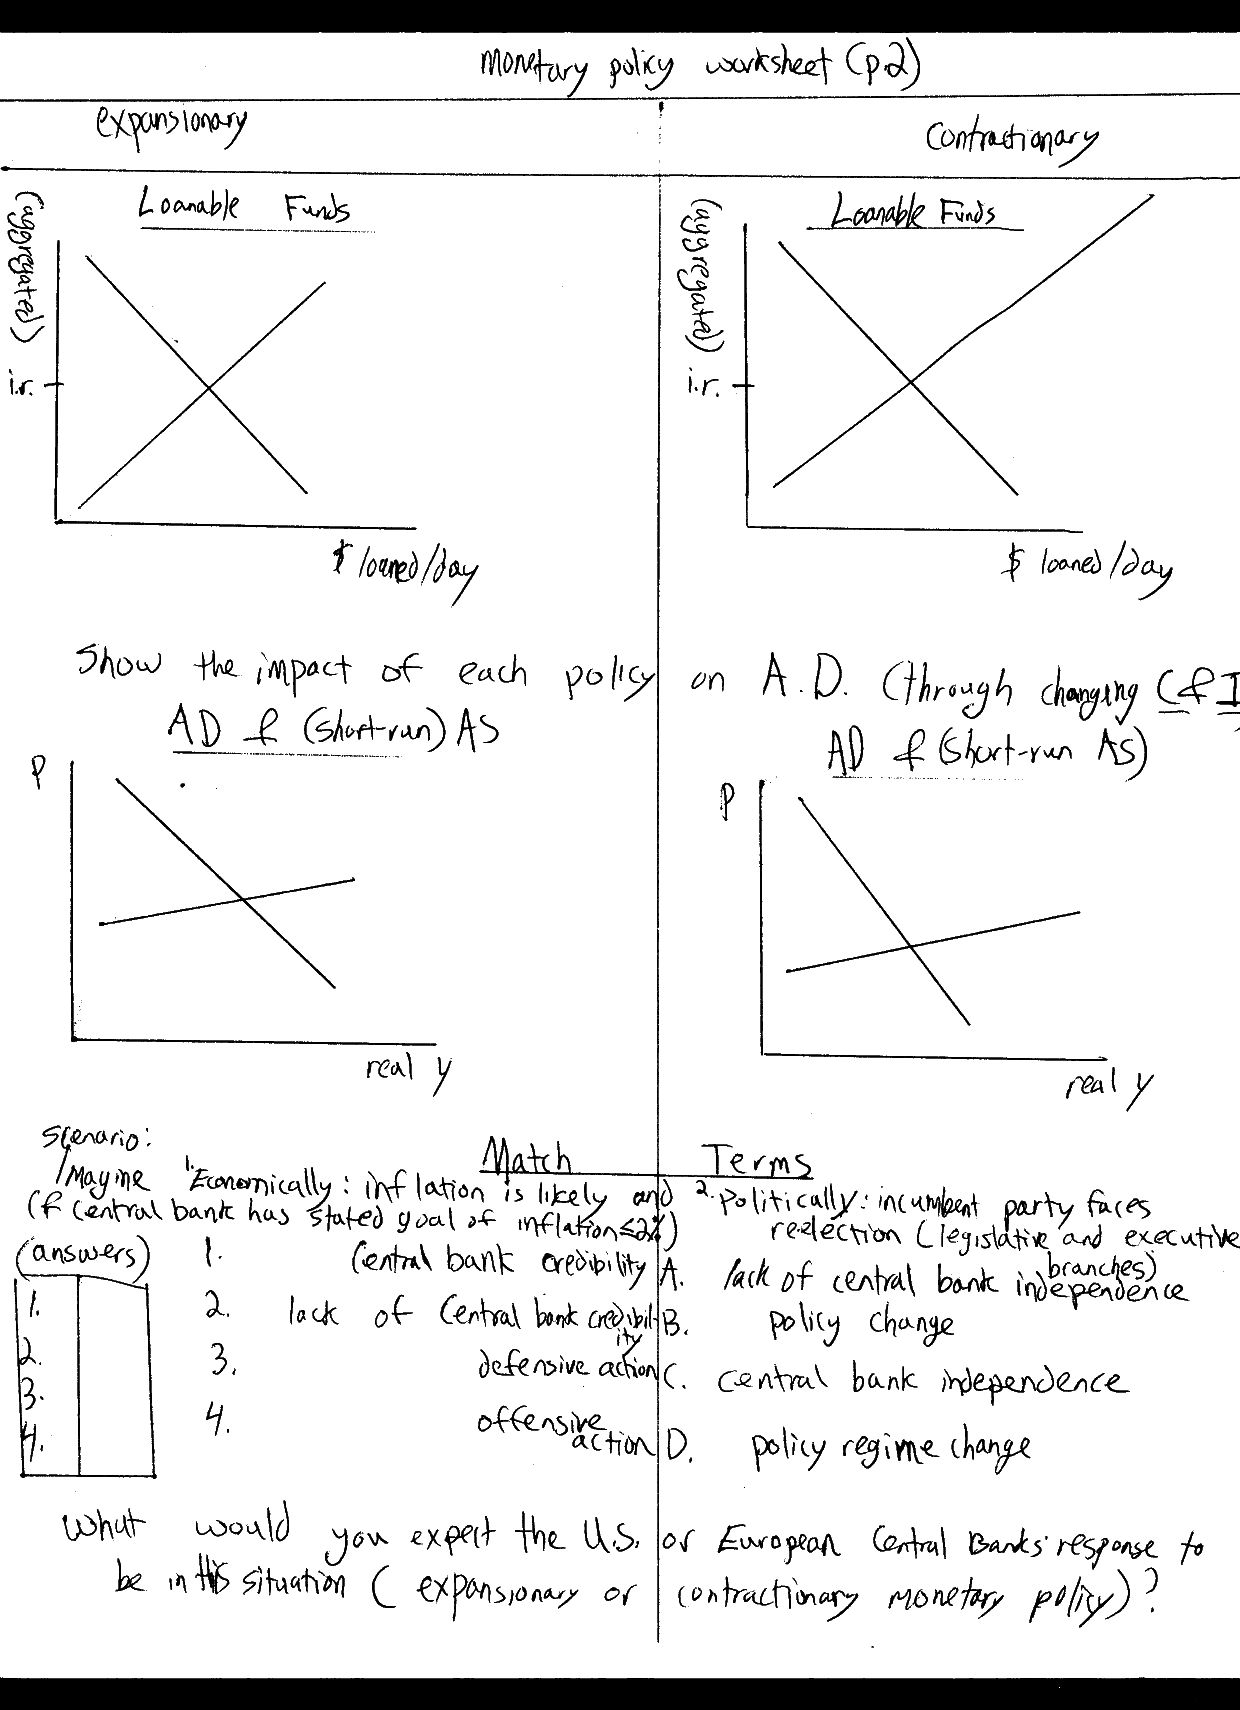 monetary policy worksheet (p.2)
expansionary
contractionary
Loanable Funds
Loanable Funds
(aggregated)
(aggregated)
i.r.
i.r.
$ loaned/day
$ loaned/day
Show the impact of each policy on A.D. (through changing C & I
AD & (short-run) AS
AD & (short-run AS)
P
P
real y
real y
scenario:
Match Terms
Imagine 1. Economically: inflation is likely and
(if central bank has stated goal of inflation ≤2%)
2. Politically: incumbent party faces
reelection (legislative and executive
branches)
(answers)
1.
2.
3.
4.
1. Central bank credibility
2. lack of Central bank credibility
3. defensive action
4. offensive action
A. lack of central bank independence
B. policy change
C. central bank independence
D. policy regime change
What would you expect the U.S. or European Central Banks' response to
be in this situation (expansionary or contractionary monetary policy)?